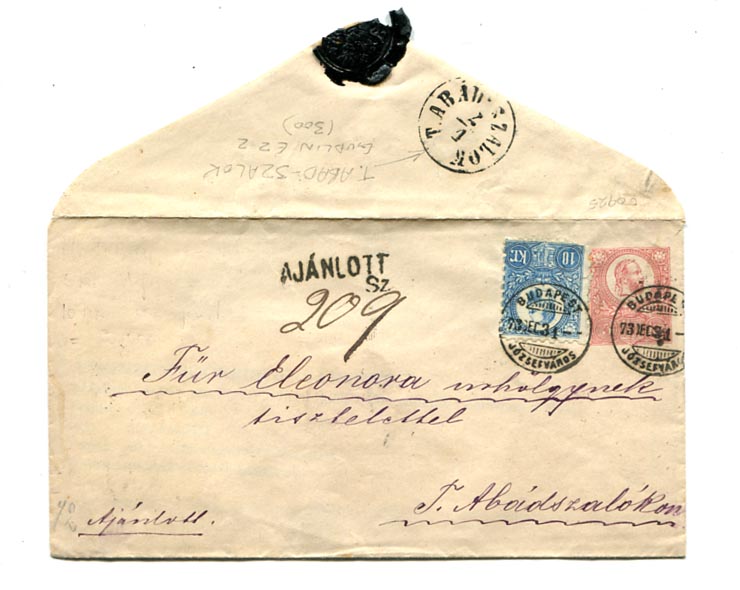 T. ABÁD-SZALOK
1/1
T. ABÁD-SZALOK
GUDLIN E 2 2
(300)
00925
AJÁNLOTT
Sz.
209
10 Kr.
BUDAPEST
73 DEC 31
JÓZSEFVÁROS
BUDAPE
73 DEC 31
JÓZSEFVÁROS
Für Eleonora urhölgynek
tisztelettel
T. Abádszalókon
Ajánlott.